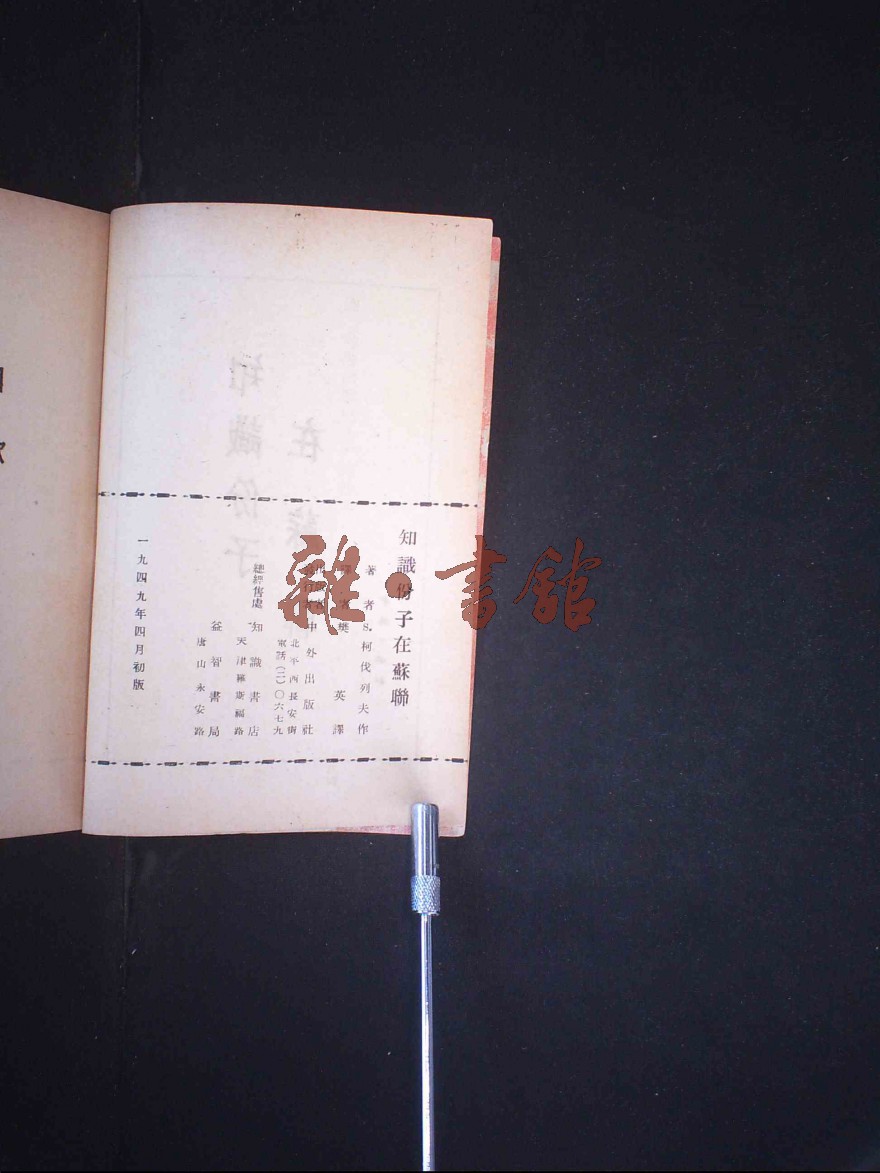 知識份子在蘇聯
著者 S.柯伐列夫作
譯者 樊英譯
中外出版社
北平西長安街
電話(二)〇六七九
總經售處 知識書店
天津羅斯福路
益智書局
唐山永安路
一九四九年四月初版
雜·書館